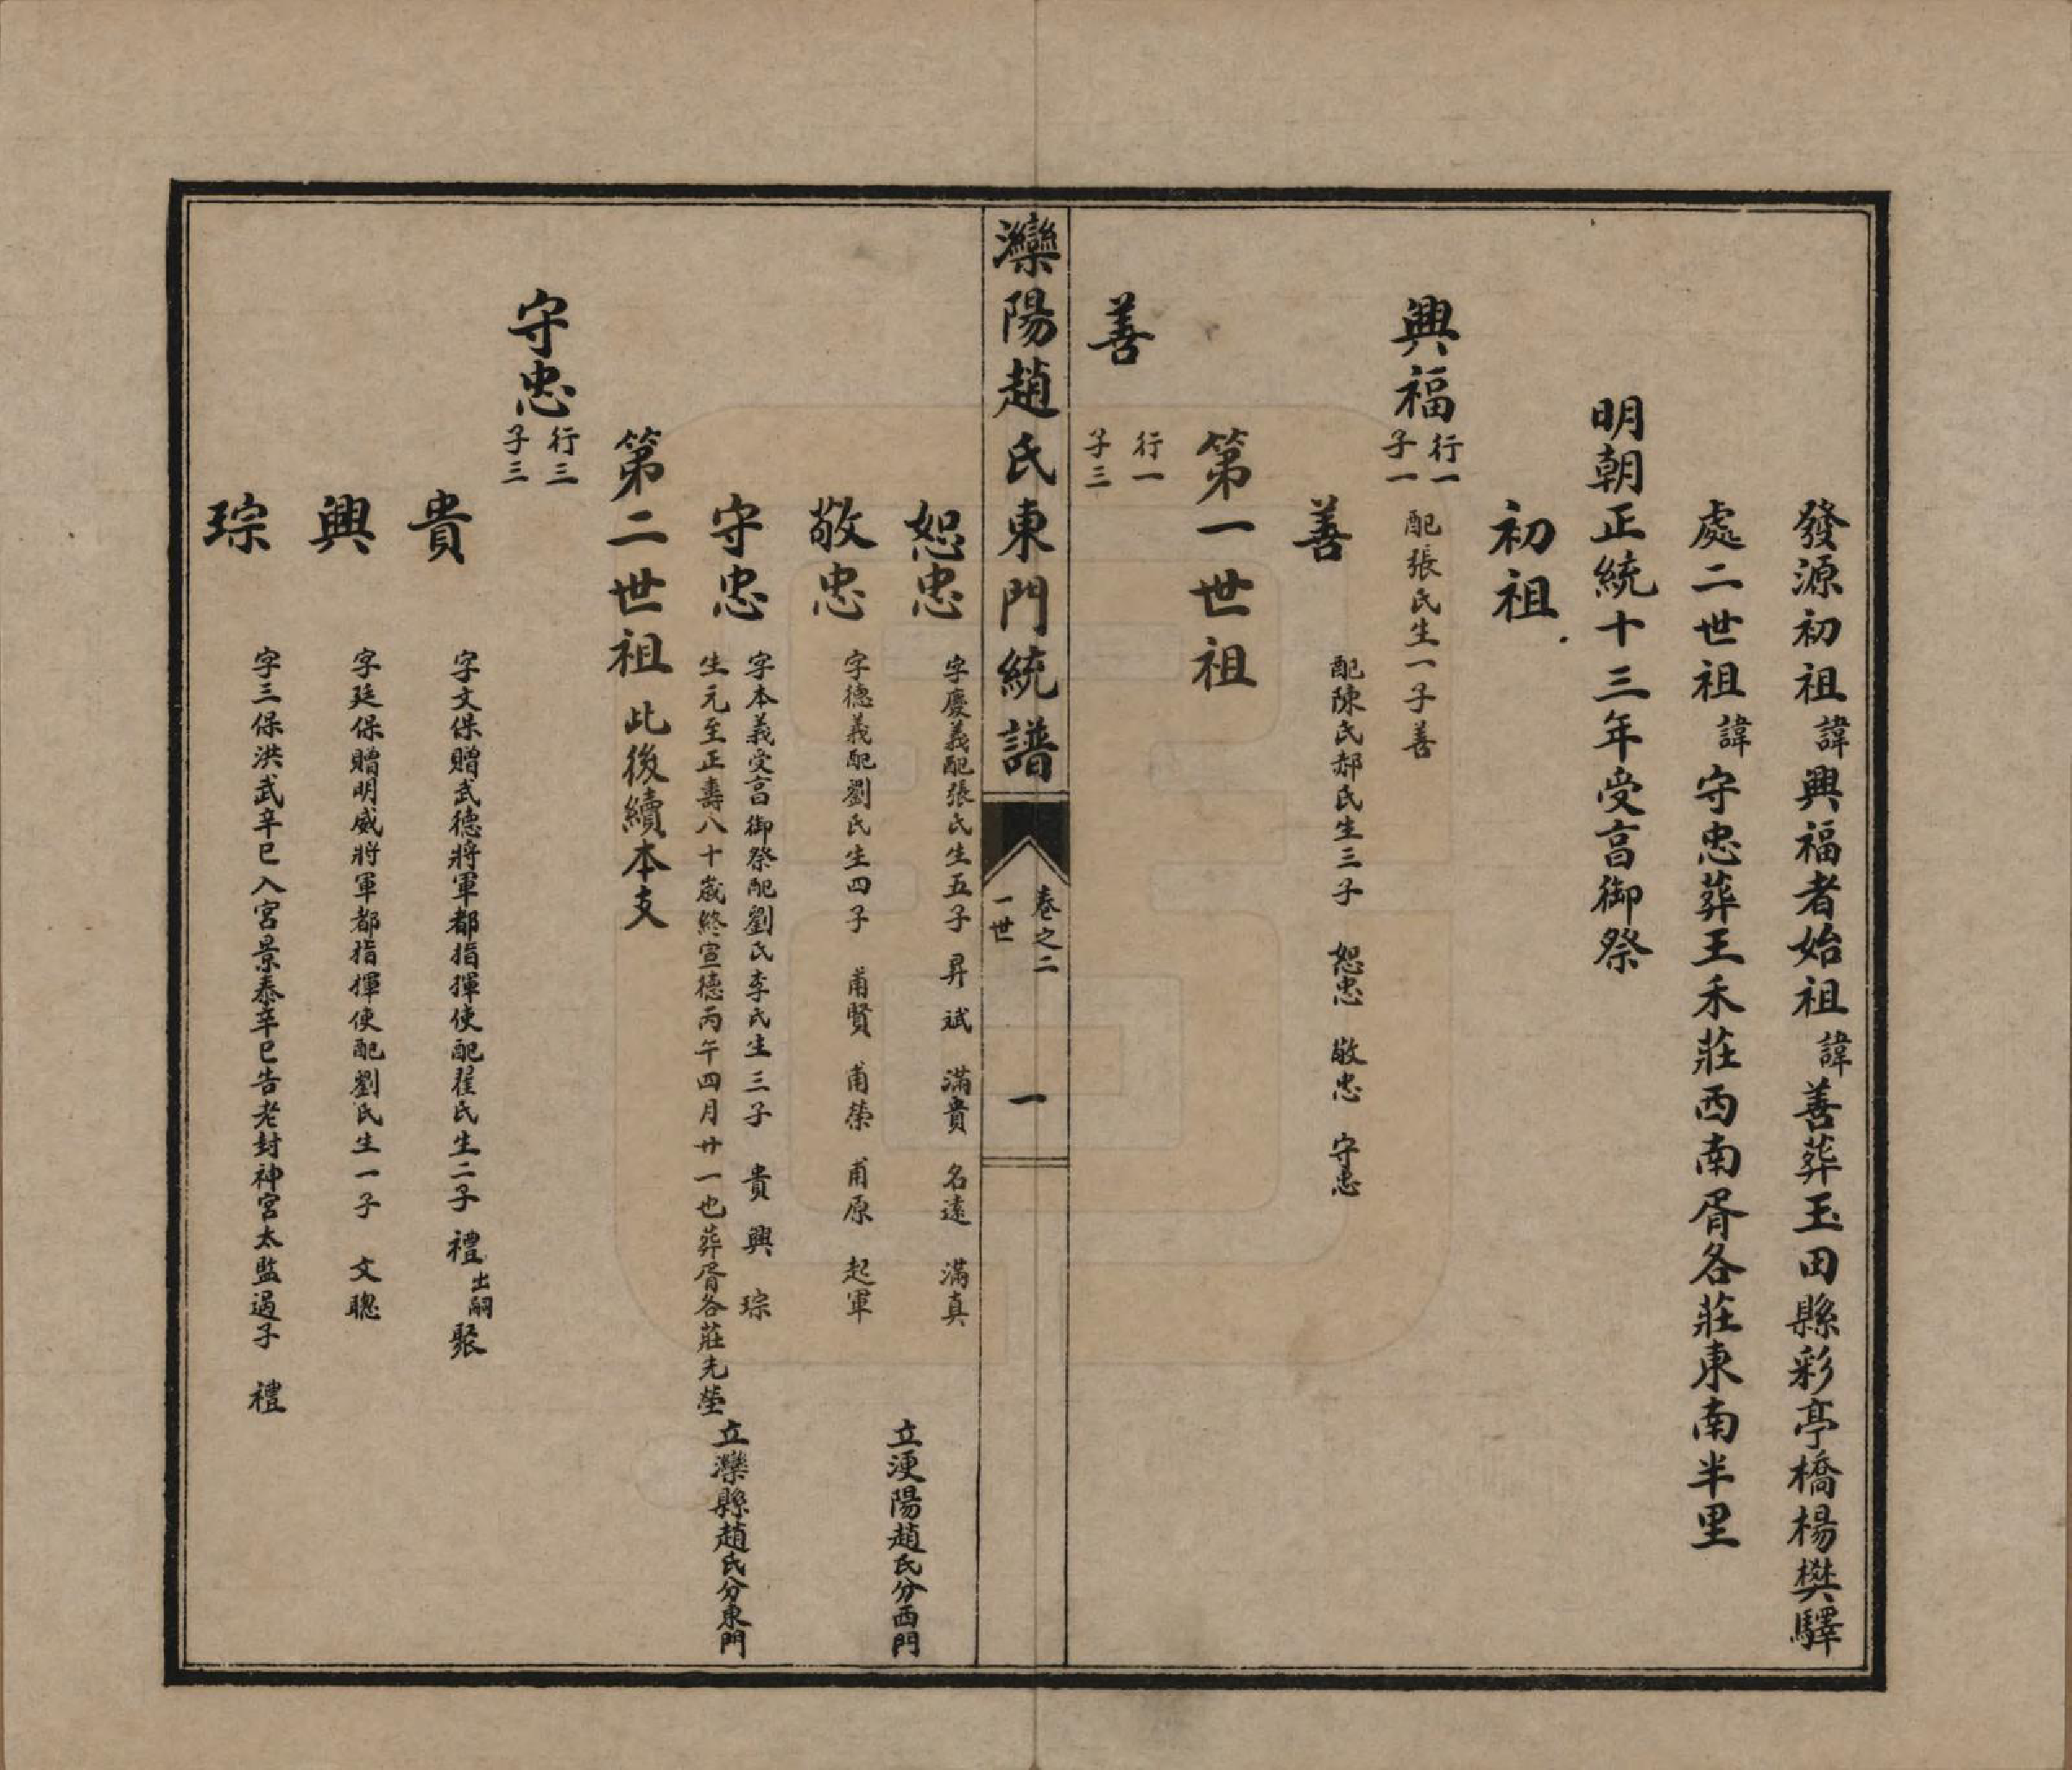 發源初祖諱興福者始祖諱善葬玉田縣彩亭橋楊樊驛
處二世祖諱守忠葬王禾莊西南胥各莊東南半里
明朝正統十三年受言御祭
初祖
興福 行一 子一 配張氏生一子善
善 配陳氏郝氏生三子 恕忠 敬忠 守忠
第一世祖
善 行一 子三
灤陽趙氏東門統譜 卷之二 一世 一
恕忠 字慶義配張氏生五子 昇 斌 滿貴 名遠 滿真
立浭陽趙氏分西門
敬忠 字德義配劉氏生四子 甫賢 甫榮 甫原 起軍
守忠 字本義受言御祭配劉氏李氏生三子 貴 興 琮
生元至正壽八十歲終宣德丙午四月廿一也葬胥各莊先塋
立灤縣趙氏分東門
第二世祖 此後續本支
守忠 行三 子三
貴 字文保贈武德將軍都指揮使配崔氏生二子 禮出嗣 聚
興 字廷保贈明威將軍都指揮使配劉氏生一子 文聰
琮 字三保洪武辛巳入宮景泰辛巳告老封神宮太監過子 禮